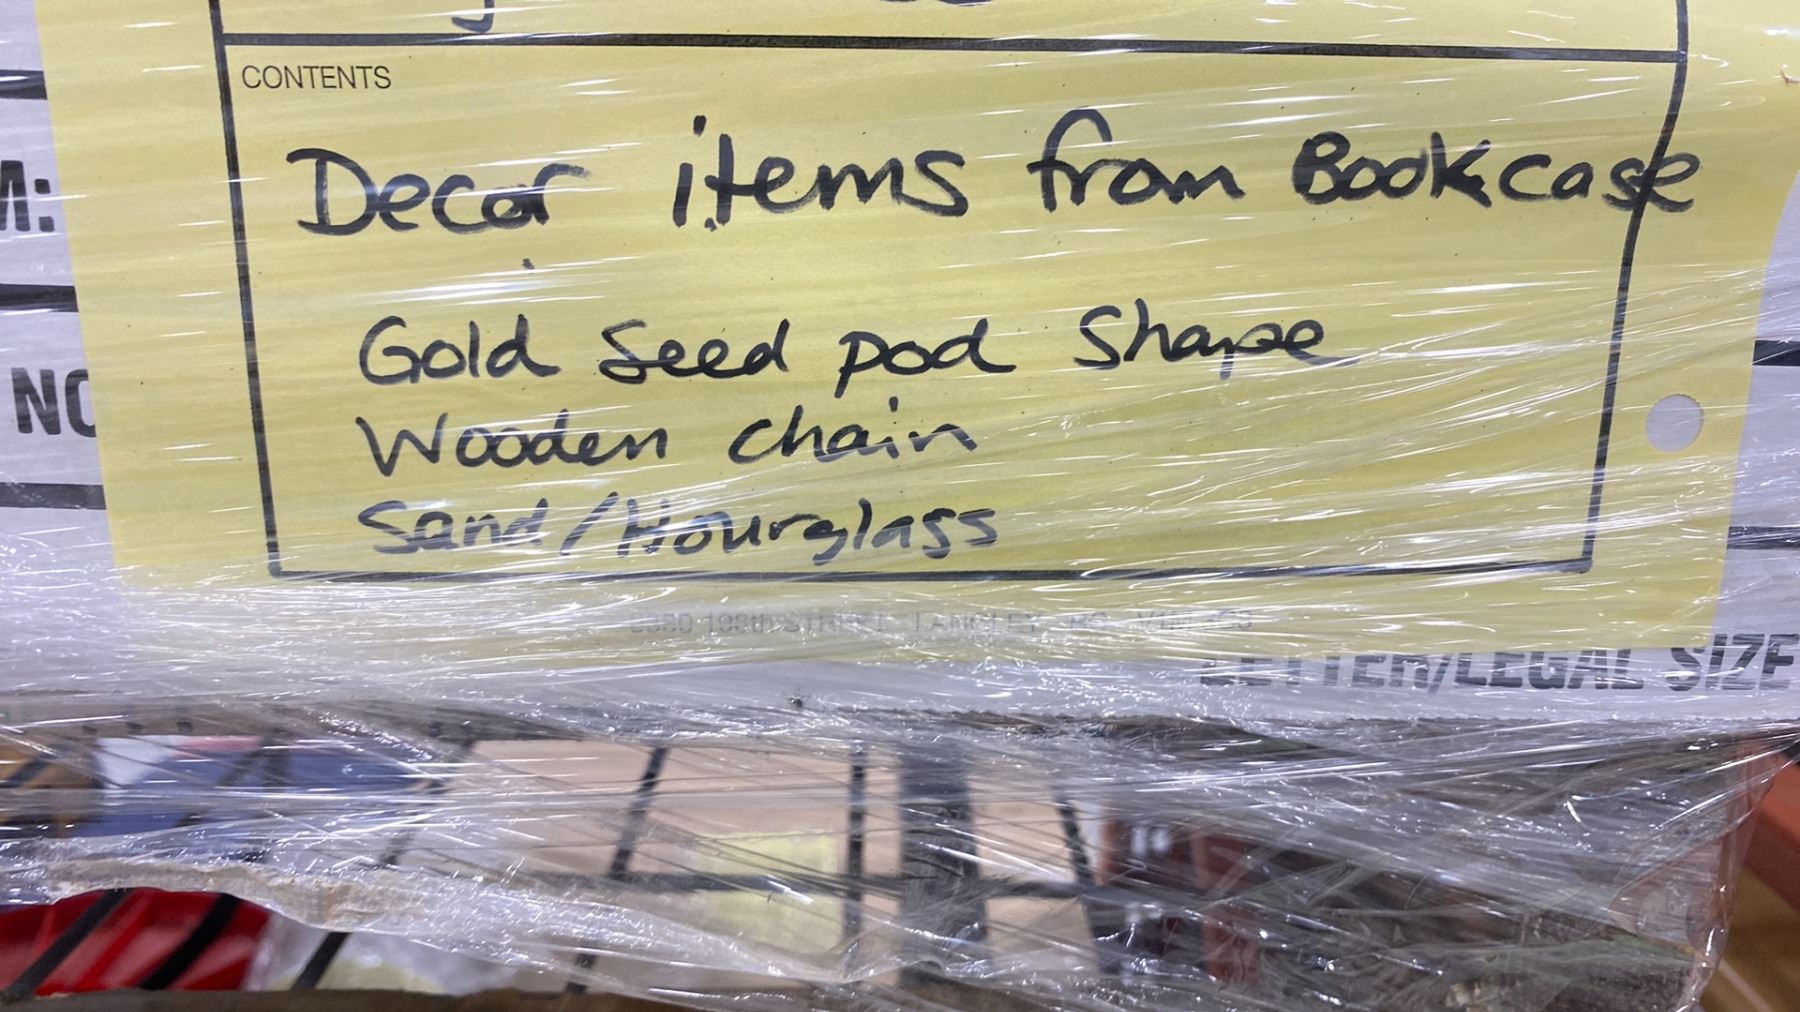 CONTENTS
Decor items from Bookcase
Gold Seed pod Shape
Wooden chain
Sand/Hourglass
STREET LANGLEY BC
LETTER/LEGAL SIZE
M:
NO